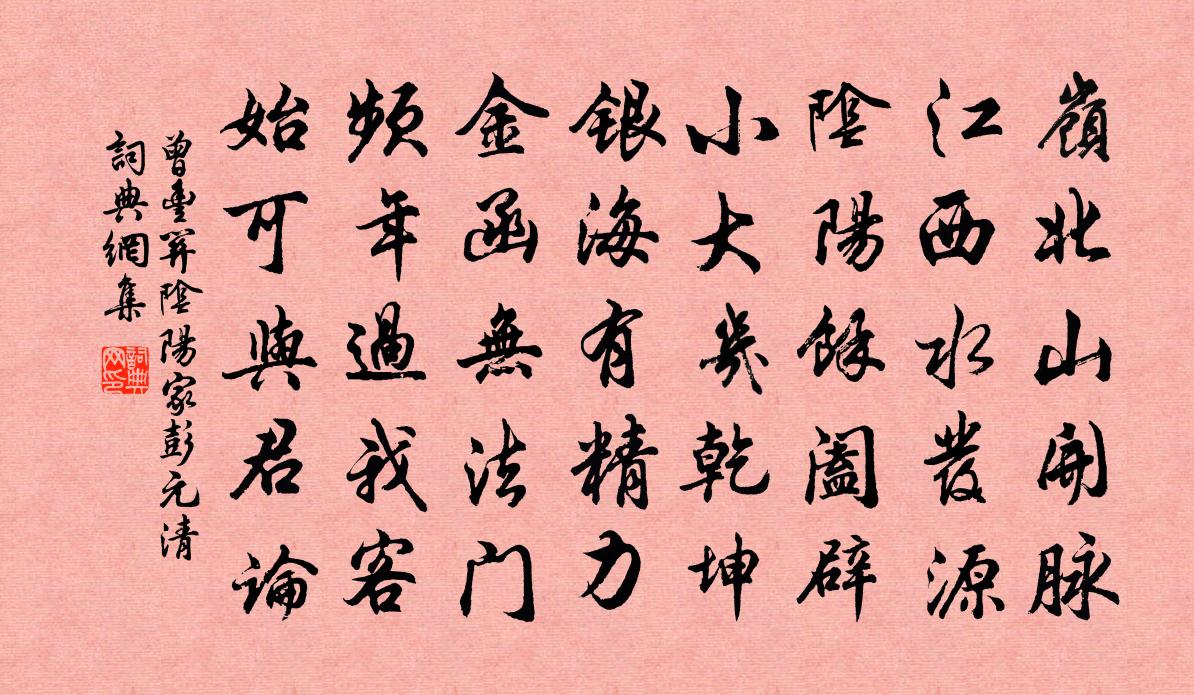 嶺北山開脉
江西水發源
陰陽餘闔辟
小大幾乾坤
銀海有精力
金函無法門
頻年過我客
始可與君論
曾豐陰陽家彭元清
詞典網集
詞典网印